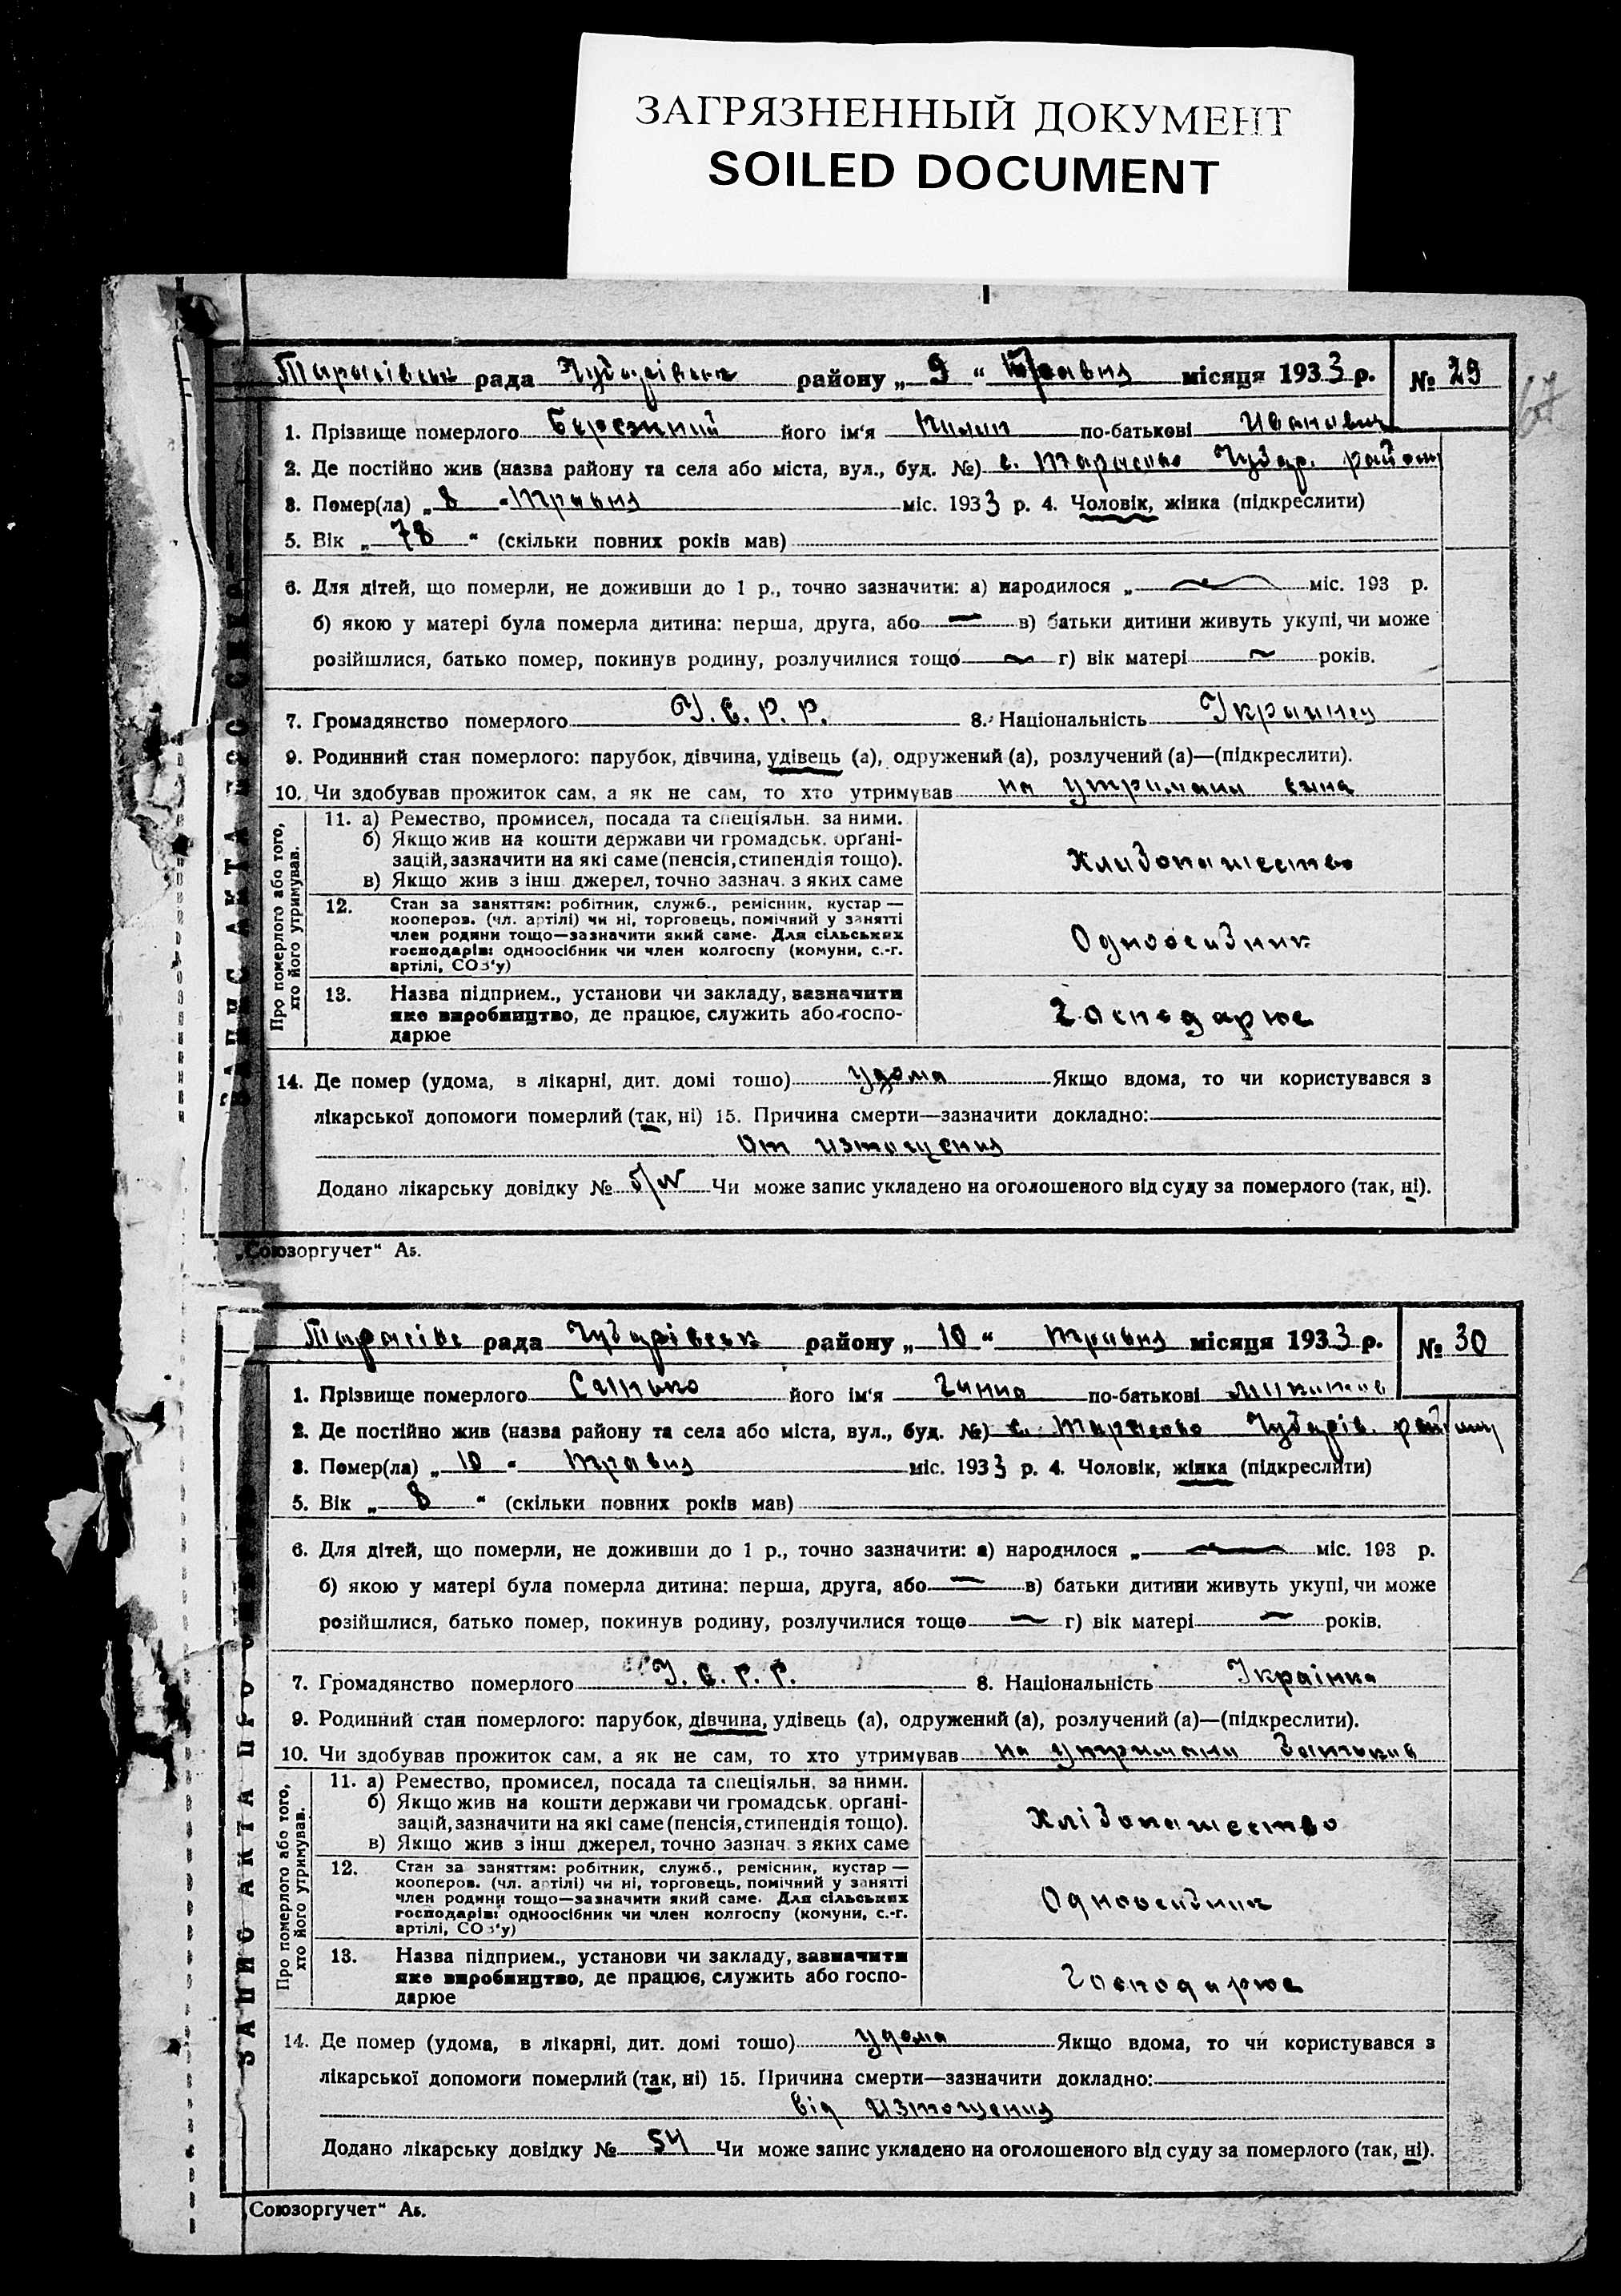 ЗАГРЯЗНЕННЫЙ ДОКУМЕНТ
SOILED DOCUMENT
67
Тарасівськ рада Чубарівськ району „ 9 “ травня місяця 1933 р. № 29
1. Прізвище померлого Березний його ім'я Пилип по-батькові Иванович
2. Де постійно жив (назва району та села або міста, вул., буд. №) с. Тарасовo Чубар. району
3. Помер(ла) „ 8 “ Травня міс. 1933 р. 4. Чоловік, жінка (підкреслити)
5. Вік „ 78 “ (скільки повних років мав)
6. Для дітей, що померли, не доживши до 1 р., точно зазначити: а) народилося „ міс. 193 р.
б) якою у матері була померла дитина: перша, друга, або в) батьки дитини живуть укупі, чи може
розійшлися, батько помер, покинув родину, розлучилися тощо г) вік матері років.
7. Громадянство померлого У. С. Р. Р. 8. Національність Украинец
9. Родинний стан померлого: парубок, дівчина, удівець (а), одружений (а), розлучений (а)—(підкреслити).
10. Чи здобував прожиток сам, а як не сам, то хто утримував на утримани сина
ЗАПИС АКТА ПРО СМЕРТЬ
Про померлого або того, хто його утримував.
11. а) Ремество, промисел, посада та спеціяльн. за ними.
б) Якщо жив на кошти держави чи громадськ. органі-
зацій, зазначити на які саме (пенсія, стипендія тощо).
в) Якщо жив з інш джерел, точно зазнач. з яких саме
Хлибопашество
12. Стан за заняттям: робітник, служб., ремісник, кустар —
кооперов. (чл. артілі) чи ні, торговець, помічний у занятті
член родини тощо—зазначити який саме. Для сільських
господарів: одноосібник чи член колгоспу (комуни, с.-г.
артілі, СОЗ'у)
Одноосибник
13. Назва підприєм., установи чи закладу, зазначити
яке виробництво, де працює, служить або госпо-
дарює
Господарює
14. Де помер (удома, в лікарні, дит. домі тошо) удома Якщо вдома, то чи користувався з
лікарської допомоги померлий (так, ні) 15. Причина смерти—зазначити докладно:
От изтощения
Додано лікарську довідку № б/N Чи може запис укладено на оголошеного від суду за померлого (так, ні).
„Союзоргучет“ А5.
Тарасівс рада Чубарівськ району „ 10 “ травня місяця 1933 р. № 30
1. Прізвище померлого його ім'я Ганна по-батькові
2. Де постійно жив (назва району та села або міста, вул., буд. №) с. Тарасово Чубарів. району
3. Помер(ла) „ 10 “ травня міс. 1933 р. 4. Чоловік, жінка (підкреслити)
5. Вік „ 8 “ (скільки повних років мав)
6. Для дітей, що померли, не доживши до 1 р., точно зазначити: а) народилося „ міс. 193 р.
б) якою у матері була померла дитина: перша, друга, або в) батьки дитини живуть укупі, чи може
розійшлися, батько помер, покинув родину, розлучилися тощо г) вік матері років.
7. Громадянство померлого У. С. Р. Р. 8. Національність Українка
9. Родинний стан померлого: парубок, дівчина, удівець (а), одружений (а), розлучений (а)—(підкреслити).
10. Чи здобував прожиток сам, а як не сам, то хто утримував на утримани
ЗАПИС АКТА ПРО
Про померлого або того, хто його утримував.
11. а) Ремество, промисел, посада та спеціяльн. за ними.
б) Якщо жив на кошти держави чи громадськ. органі-
зацій, зазначити на які саме (пенсія, стипендія тощо).
в) Якщо жив з інш джерел, точно зазнач. з яких саме
Хлібопашество
12. Стан за заняттям: робітник, служб., ремісник, кустар —
кооперов. (чл. артілі) чи ні, торговець, помічний у занятті
член родини тощо—зазначити який саме. Для сільських
господарів: одноосібник чи член колгоспу (комуни, с.-г.
артілі, СОЗ'у)
Одноосибник
13. Назва підприєм., установи чи закладу, зазначити
яке виробництво, де працює, служить або госпо-
дарює
Господарює
14. Де помер (удома, в лікарні, дит. домі тошо) удома Якщо вдома, то чи користувався з
лікарської допомоги померлий (так, ні) 15. Причина смерти—зазначити докладно:
від изтощения
Додано лікарську довідку № Чи може запис укладено на оголошеного від суду за померлого (так, ні).
„Союзоргучет“ А5.